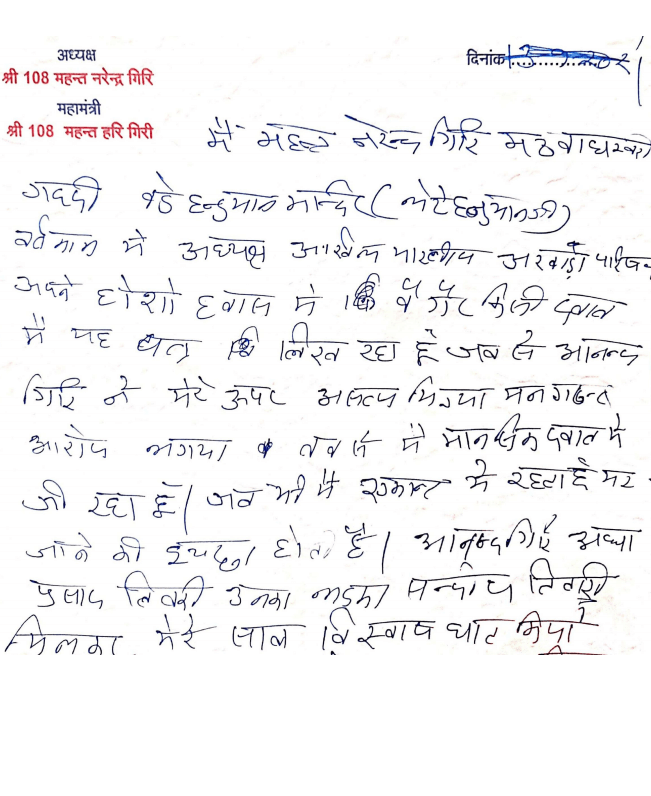 अध्यक्ष
श्री 108 महन्त नरेन्द्र गिरि
महामंत्री
श्री 108 महन्त हरि गिरी
दिनांक
मैं महन्त नरेन्द्र गिरि मठ बाघम्बरी
गद्दी बडे हनुमान मन्दिर (लेटे हनुमानजी)
वर्तमान मे अध्यक्ष अखिल भारतीय अखाड़ा परिषद
अपने होशो हवास मे बगैर किसी दबाव
मे यह पत्र लिख रहा हूँ जब से आनन्द
गिरि ने मेरे ऊपर असत्य मिथ्या मनगढन्त
आरोप लगाया तब से मै मानसिक दबाव मे
जी रहा हूँ। जब भी मै एकान्त मे रहता हूँ मर
जाने की इच्छा होती है। आनन्द गिरि अध्या
प्रसाद तिवारी उनका लड़का सन्दीप तिवारी
मिलकर मेरे साथ विस्वासघात किया